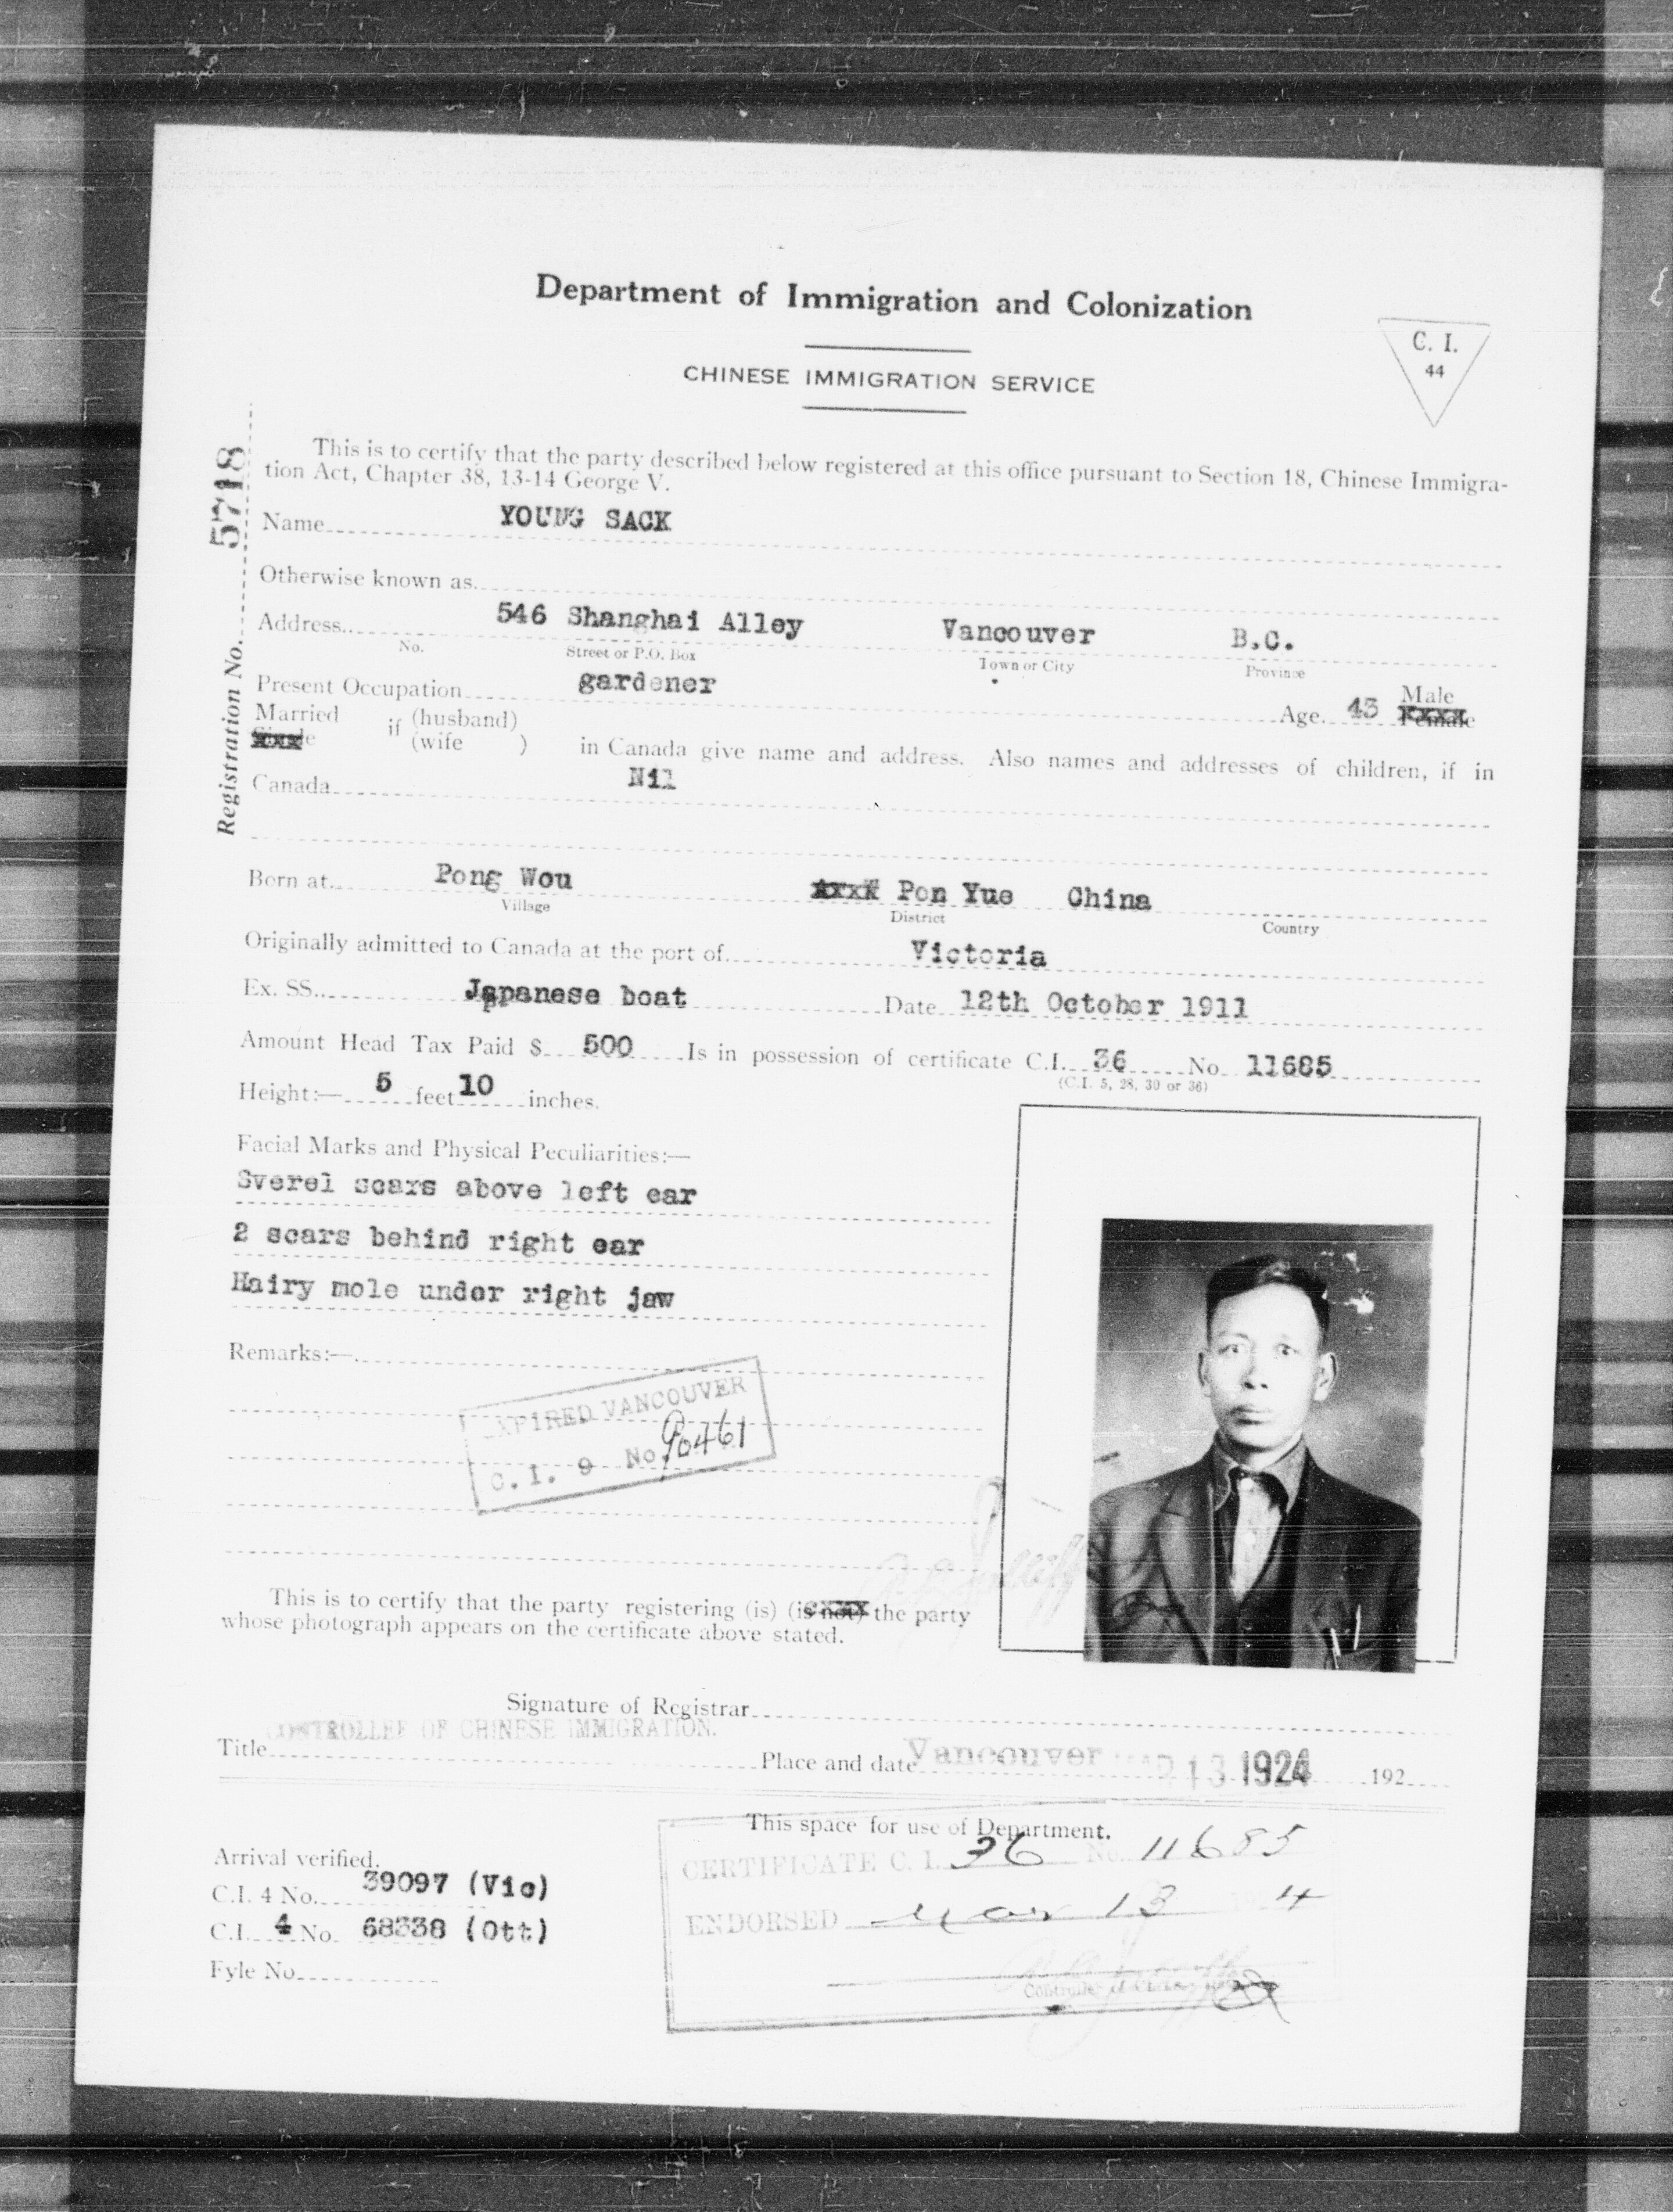 Department of Immigration and Colonization
CHINESE IMMIGRATION SERVICE
C. I.
44
Registration No. 5718
This is to certify that the party described below registered at this office pursuant to Section 18, Chinese Immigra-
tion Act, Chapter 38, 13-14 George V.
Name YOUNG SACK
Otherwise known as
Address 546 Shanghai Alley Vancouver B.C.
No. Street or P.O. Box Town or City Province
Present Occupation gardener Age 43 Male
Female
Married if (husband)
Single (wife ) in Canada give name and address. Also names and addresses of children, if in
Canada Nil
Born at Pong Wou Pon Yue China
Village District Country
Originally admitted to Canada at the port of Victoria
Ex. SS. Japanese boat Date 12th October 1911
Amount Head Tax Paid $ 500 Is in possession of certificate C.I. 36 No 11685
(C.I. 5, 28, 30 or 36)
Height:— 5 feet 10 inches.
Facial Marks and Physical Peculiarities:—
Sverel scars above left ear
2 scars behind right ear
Hairy mole under right jaw
Remarks:—
EXPIRED VANCOUVER
C. I. 9 No. 90461
This is to certify that the party registering (is) (is not) the party
whose photograph appears on the certificate above stated.
Signature of Registrar
CONTROLLER OF CHINESE IMMIGRATION.
Title Place and date Vancouver MAR 13 1924 192
This space for use of Department.
Arrival verified.
C.I. 4 No. 39097 (Vic)
C.I. 4 No. 68338 (Ott)
Fyle No.
CERTIFICATE C. I. 36 No. 11685
ENDORSED Mar 13 1924